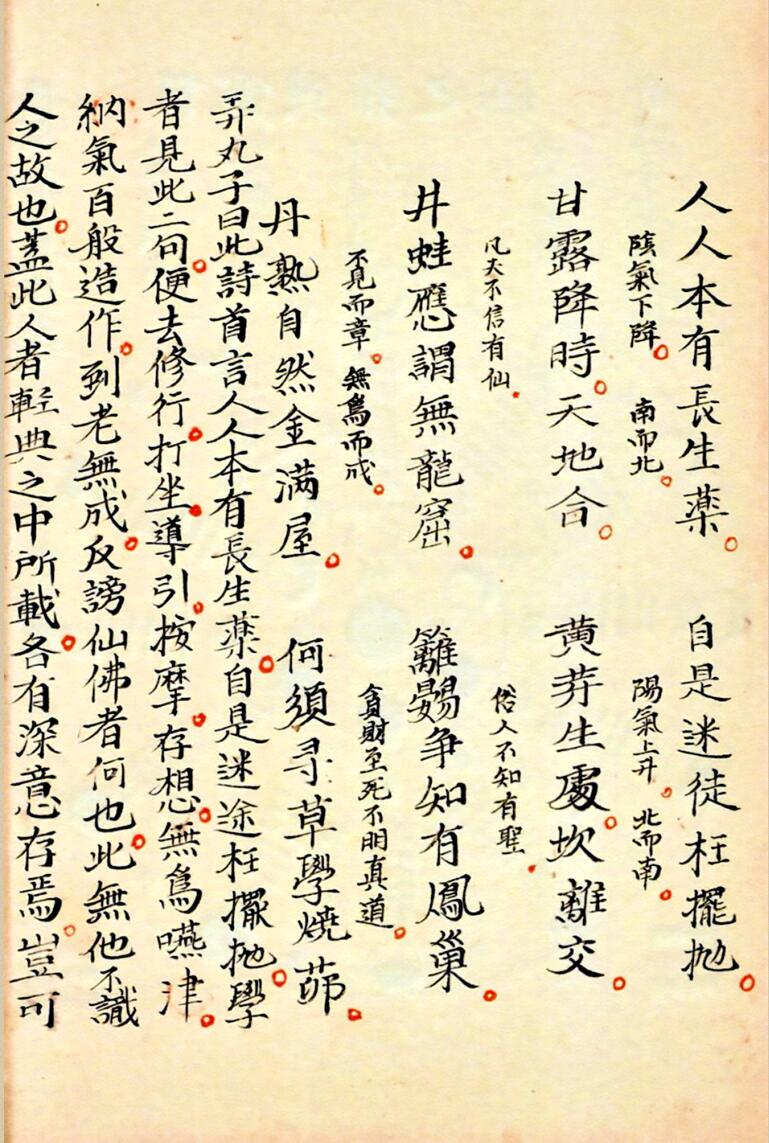 人人本有長生薬。自是迷徒枉擺抛。
陰氣下降。南而北。陽氣上升。北而南。
甘露降時。天地合。黄芽生處。坎離交。
凡夫不信有仙。俗人不知有聖。
井蛙應謂無龍窟。籬鷃争知有鳳巢。
不見而章。無為而成。貪財至死不明真道。
丹熟自然金滿屋。何須寻草學燒茆。
弄丸子曰此詩首言人人本有長生薬。自是迷途枉擺抛。學
者見此二句。便去修行。打坐。導引。按摩。存想。無為嚥津。
納氣百般造作。到老無成。反謗仙佛者何也。此無他不識
人之故也。蓋此人者輕典之中所載。各有深意存焉。豈可